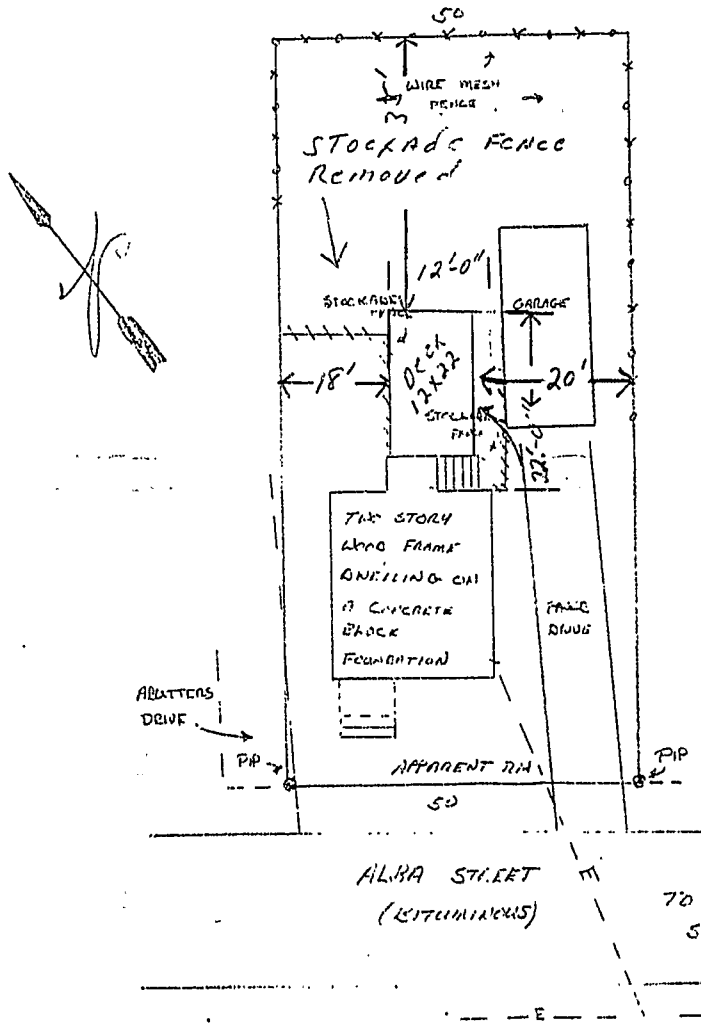 50
WIRE MESH
FENCE
STOCKADE FENCE
Removed
12'-0"
STOCKADE
GARAGE
18'
DECK
12X22
20'
22'-0"
TWO STORY
WOOD FRAME
DWELLING ON
A CONCRETE
BLOCK
FOUNDATION
DRIVE
ABUTTERS
DRIVE
PIP
APPARENT R/W
PIP
50
ALBA STREET
(BITUMINOUS)
E
70
S
E